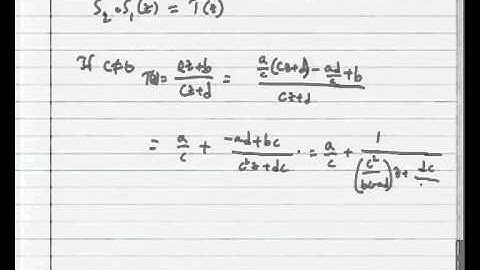 S₂∘S₁(z) = T(z)
If c≠0 T(z) = az+b / cz+d = a/c (cz+d) - ad/c + b / cz+d
= a/c + -ad+bc / c²z+dc . = a/c + 1 / (c²/bc-ad) z + dc/